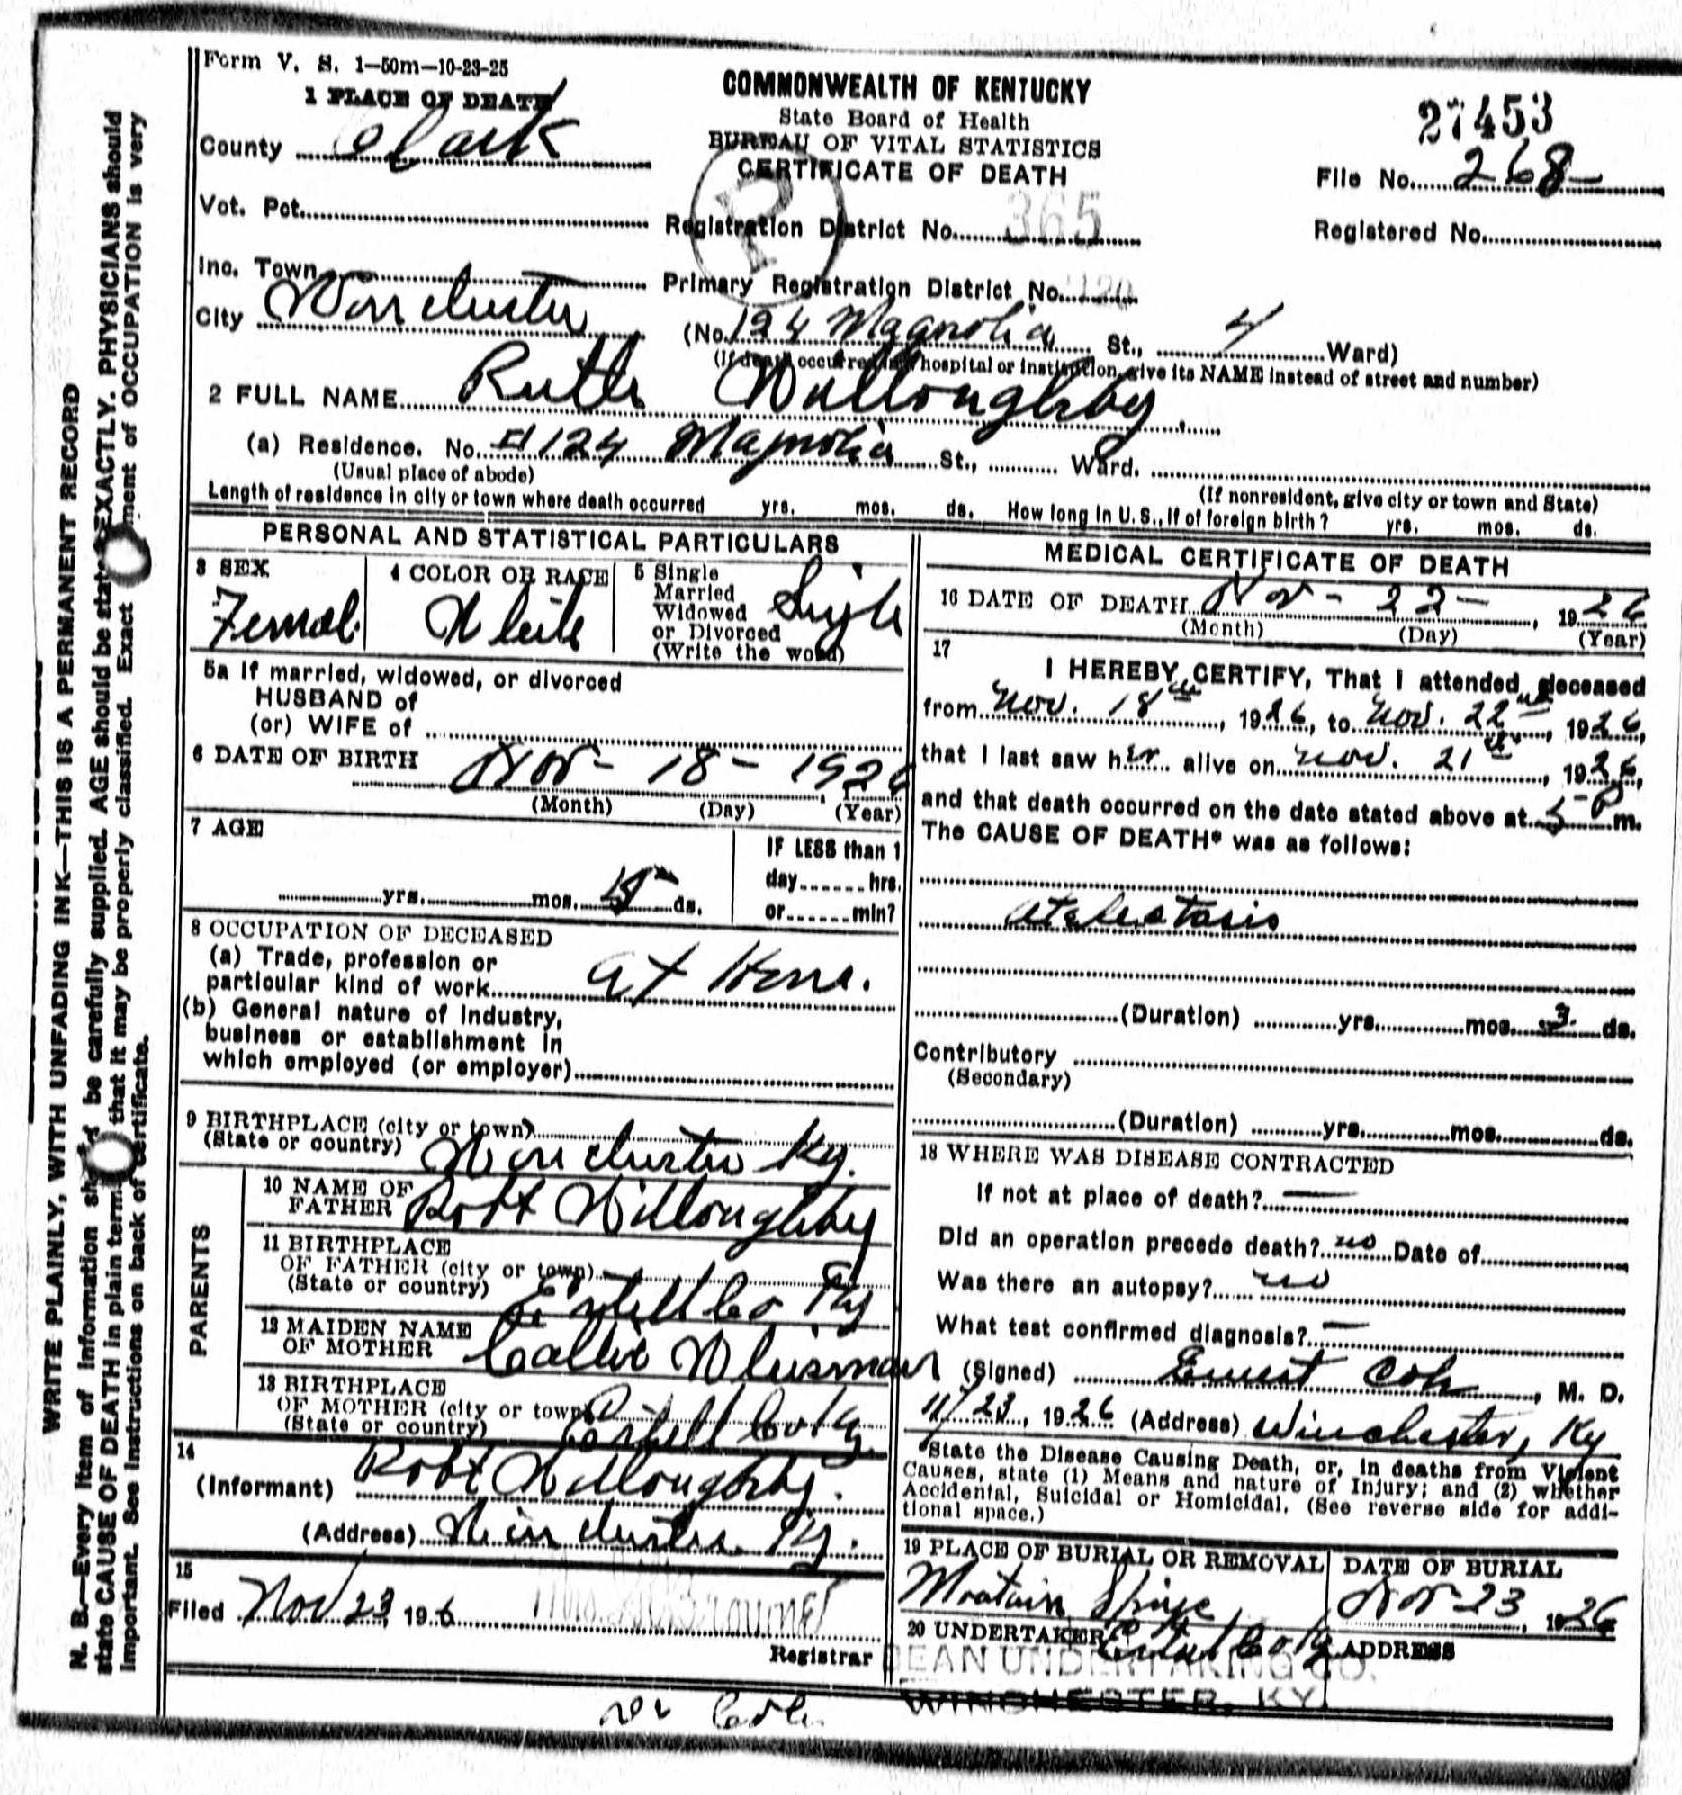 Form V. S. 1—50m—10-23-25
1 PLACE OF DEATH
County Clark
Vot. Pct.
Inc. Town
City Winchester
COMMONWEALTH OF KENTUCKY
State Board of Health
BUREAU OF VITAL STATISTICS
CERTIFICATE OF DEATH
Registration District No. 365
Primary Registration District No.
(No. 124 Magnolia St., 4 Ward)
(If death occurred in a hospital or institution, give its NAME instead of street and number)
27453
File No. 268
Registered No.
2 FULL NAME Ruth Willoughby
(a) Residence. No. #124 Magnolia St., Ward.
(Usual place of abode)
(If nonresident, give city or town and State)
Length of residence in city or town where death occurred yrs. mos. ds. How long in U. S., if of foreign birth? yrs. mos. ds.
PERSONAL AND STATISTICAL PARTICULARS
3 SEX
Femal
4 COLOR OR RACE
White
5 Single
Married
Widowed
or Divorced
(Write the word)
Single
5a If married, widowed, or divorced
HUSBAND of
(or) WIFE of
6 DATE OF BIRTH Nov - 18 - 1926
(Month) (Day) (Year)
7 AGE
yrs. mos. ds.
IF LESS than 1
day hrs.
or min?
8 OCCUPATION OF DECEASED
(a) Trade, profession or
particular kind of work at Home.
(b) General nature of industry,
business or establishment in
which employed (or employer)
9 BIRTHPLACE (city or town)
(State or country) Winchester Ky.
PARENTS
10 NAME OF
FATHER Robt Willoughby
11 BIRTHPLACE
OF FATHER (city or town)
(State or country) Estill Co Ky
12 MAIDEN NAME
OF MOTHER Callie Wiseman
13 BIRTHPLACE
OF MOTHER (city or town)
(State or country) Estill Co Ky.
14
(Informant) Robt Willoughby.
(Address) Winchester Ky.
15
Filed Nov 23, 1926
Registrar
MEDICAL CERTIFICATE OF DEATH
16 DATE OF DEATH Nov - 22 - , 1926
(Month) (Day) (Year)
17
I HEREBY CERTIFY, That I attended deceased
from Nov. 18th, 1926, to Nov. 22nd, 1926,
that I last saw her alive on Nov. 21st, 1926,
and that death occurred on the date stated above at 5 P m.
The CAUSE OF DEATH* was as follows:
Atelectasis
(Duration) yrs. mos. 3 ds.
Contributory
(Secondary)
(Duration) yrs. mos. ds.
18 WHERE WAS DISEASE CONTRACTED
If not at place of death? —
Did an operation precede death? no Date of
Was there an autopsy? no
What test confirmed diagnosis? —
(Signed) Ernest Cole, M. D.
11/23, 1926 (Address) Winchester, Ky
*State the Disease Causing Death, or, in deaths from Violent
Causes, state (1) Means and nature of Injury; and (2) whether
Accidental, Suicidal or Homicidal. (See reverse side for addi-
tional space.)
19 PLACE OF BURIAL OR REMOVAL
Mountain Springs
Estill Co Ky
DATE OF BURIAL
Nov 23, 1926
20 UNDERTAKER
ADDRESS
DEAN UNDERTAKING CO.
WINCHESTER, KY.
Dr Cole
WRITE PLAINLY, WITH UNFADING INK—THIS IS A PERMANENT RECORD
N. B.—Every item of information should be carefully supplied. AGE should be stated EXACTLY. PHYSICIANS should
state CAUSE OF DEATH in plain terms that it may be properly classified. Exact statement of OCCUPATION is very
important. See instructions on back of certificate.